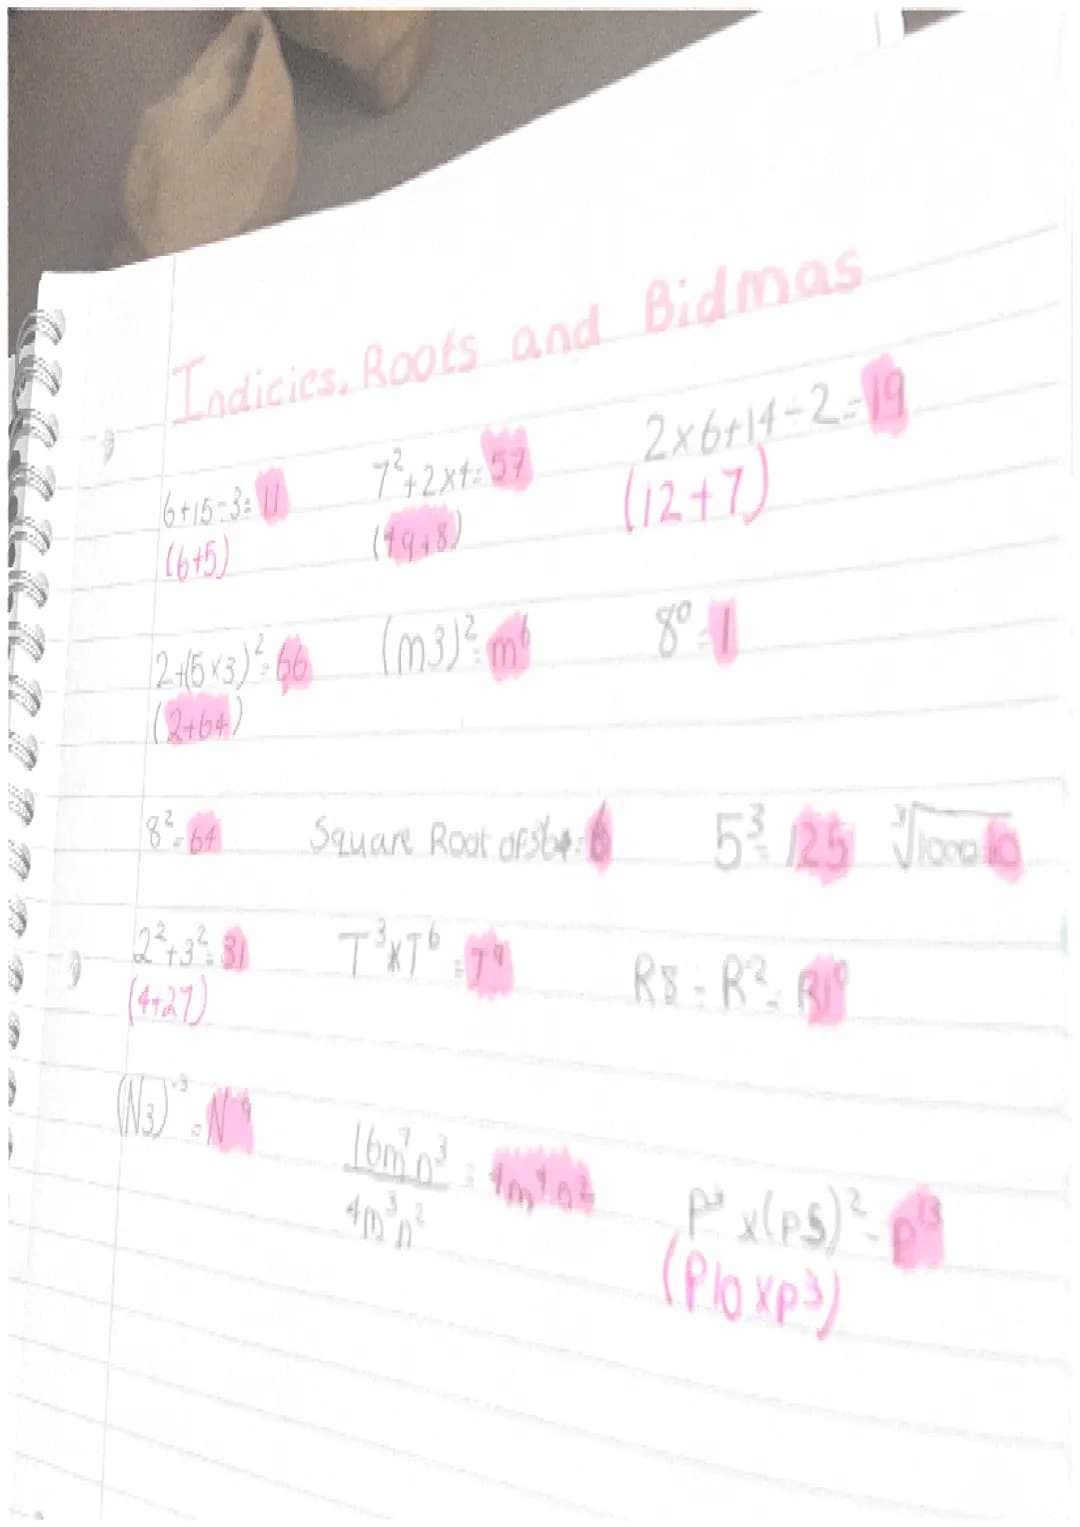 Indicies, Roots and Bidmas
6+15÷3= 11 7²+2x4= 57 2x6+14÷2= 19
(6+5) (49+8) (12+7)
2+(5x3)²= 66 (m3)²= m⁶ 8⁰= 1
(2+64)
8²= 64 Square Root of = 6 5³= 125 ³√1000 10
2²+3²= 31 T³xT⁶ = T⁹ R8 ÷ R²= R1⁰
(4+27)
(N3)⁻³ = N⁻⁹ 16m⁷n³ / 4m³n² = 4m⁴n² P³ x(P5)²= P¹³
(P10xp3)